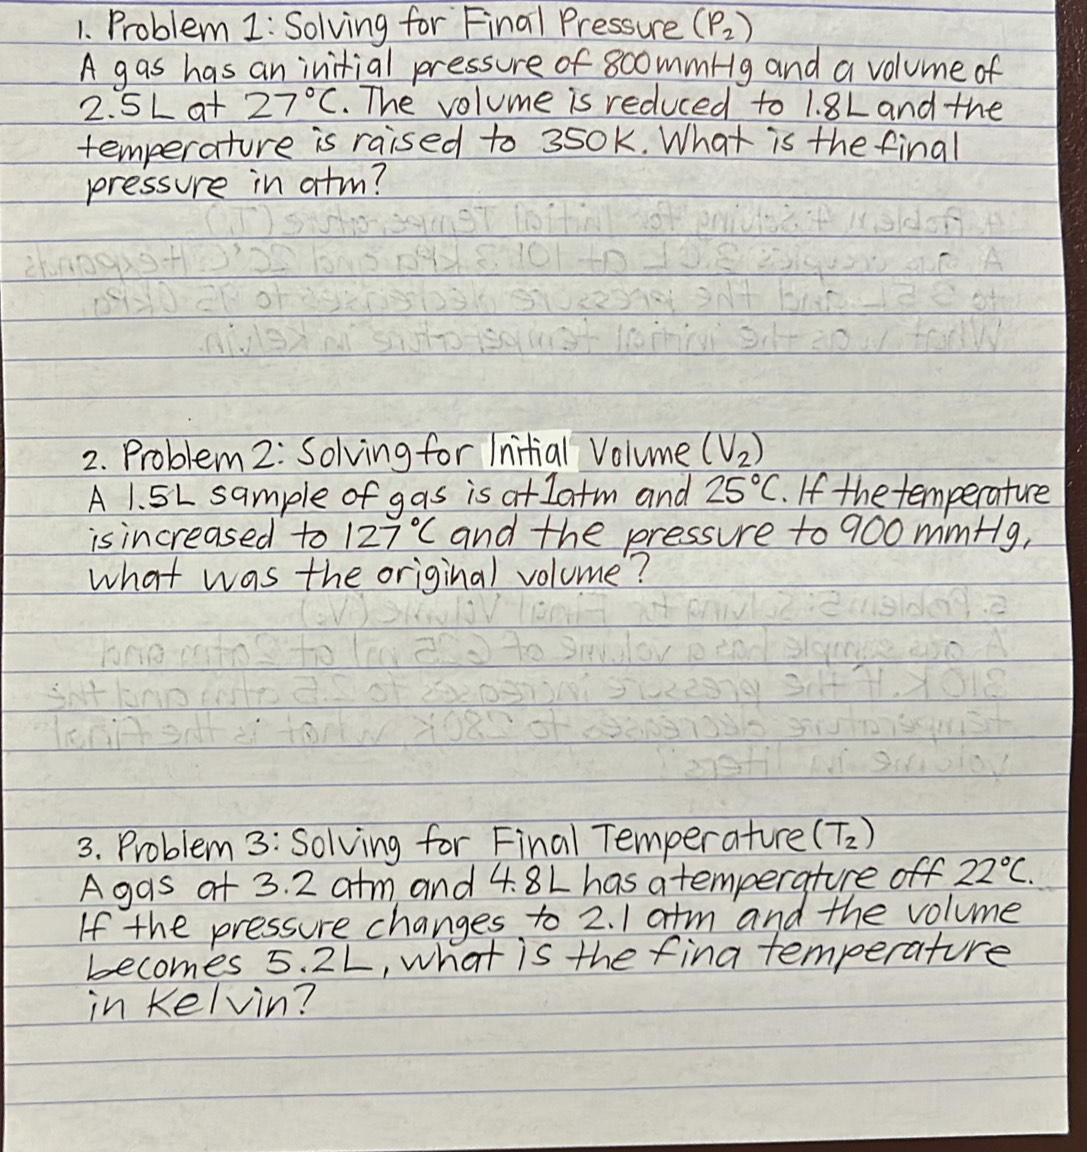 1. Problem 1: Solving for Final Pressure (P₂)
A gas has an initial pressure of 800mmHg and a volume of
2.5L at 27°C. The volume is reduced to 1.8L and the
temperature is raised to 350K. What is the final
pressure in atm?
2. Problem 2: Solving for Initial Volume (V₂)
A 1.5L sample of gas is at 1atm and 25°C. If the temperature
is increased to 127°C and the pressure to 900 mmHg,
what was the original volume?
3. Problem 3: Solving for Final Temperature (T₂)
A gas at 3.2 atm and 4.8L has a temperature off 22°C.
If the pressure changes to 2.1 atm and the volume
becomes 5.2L, what is the fina temperature
in Kelvin?